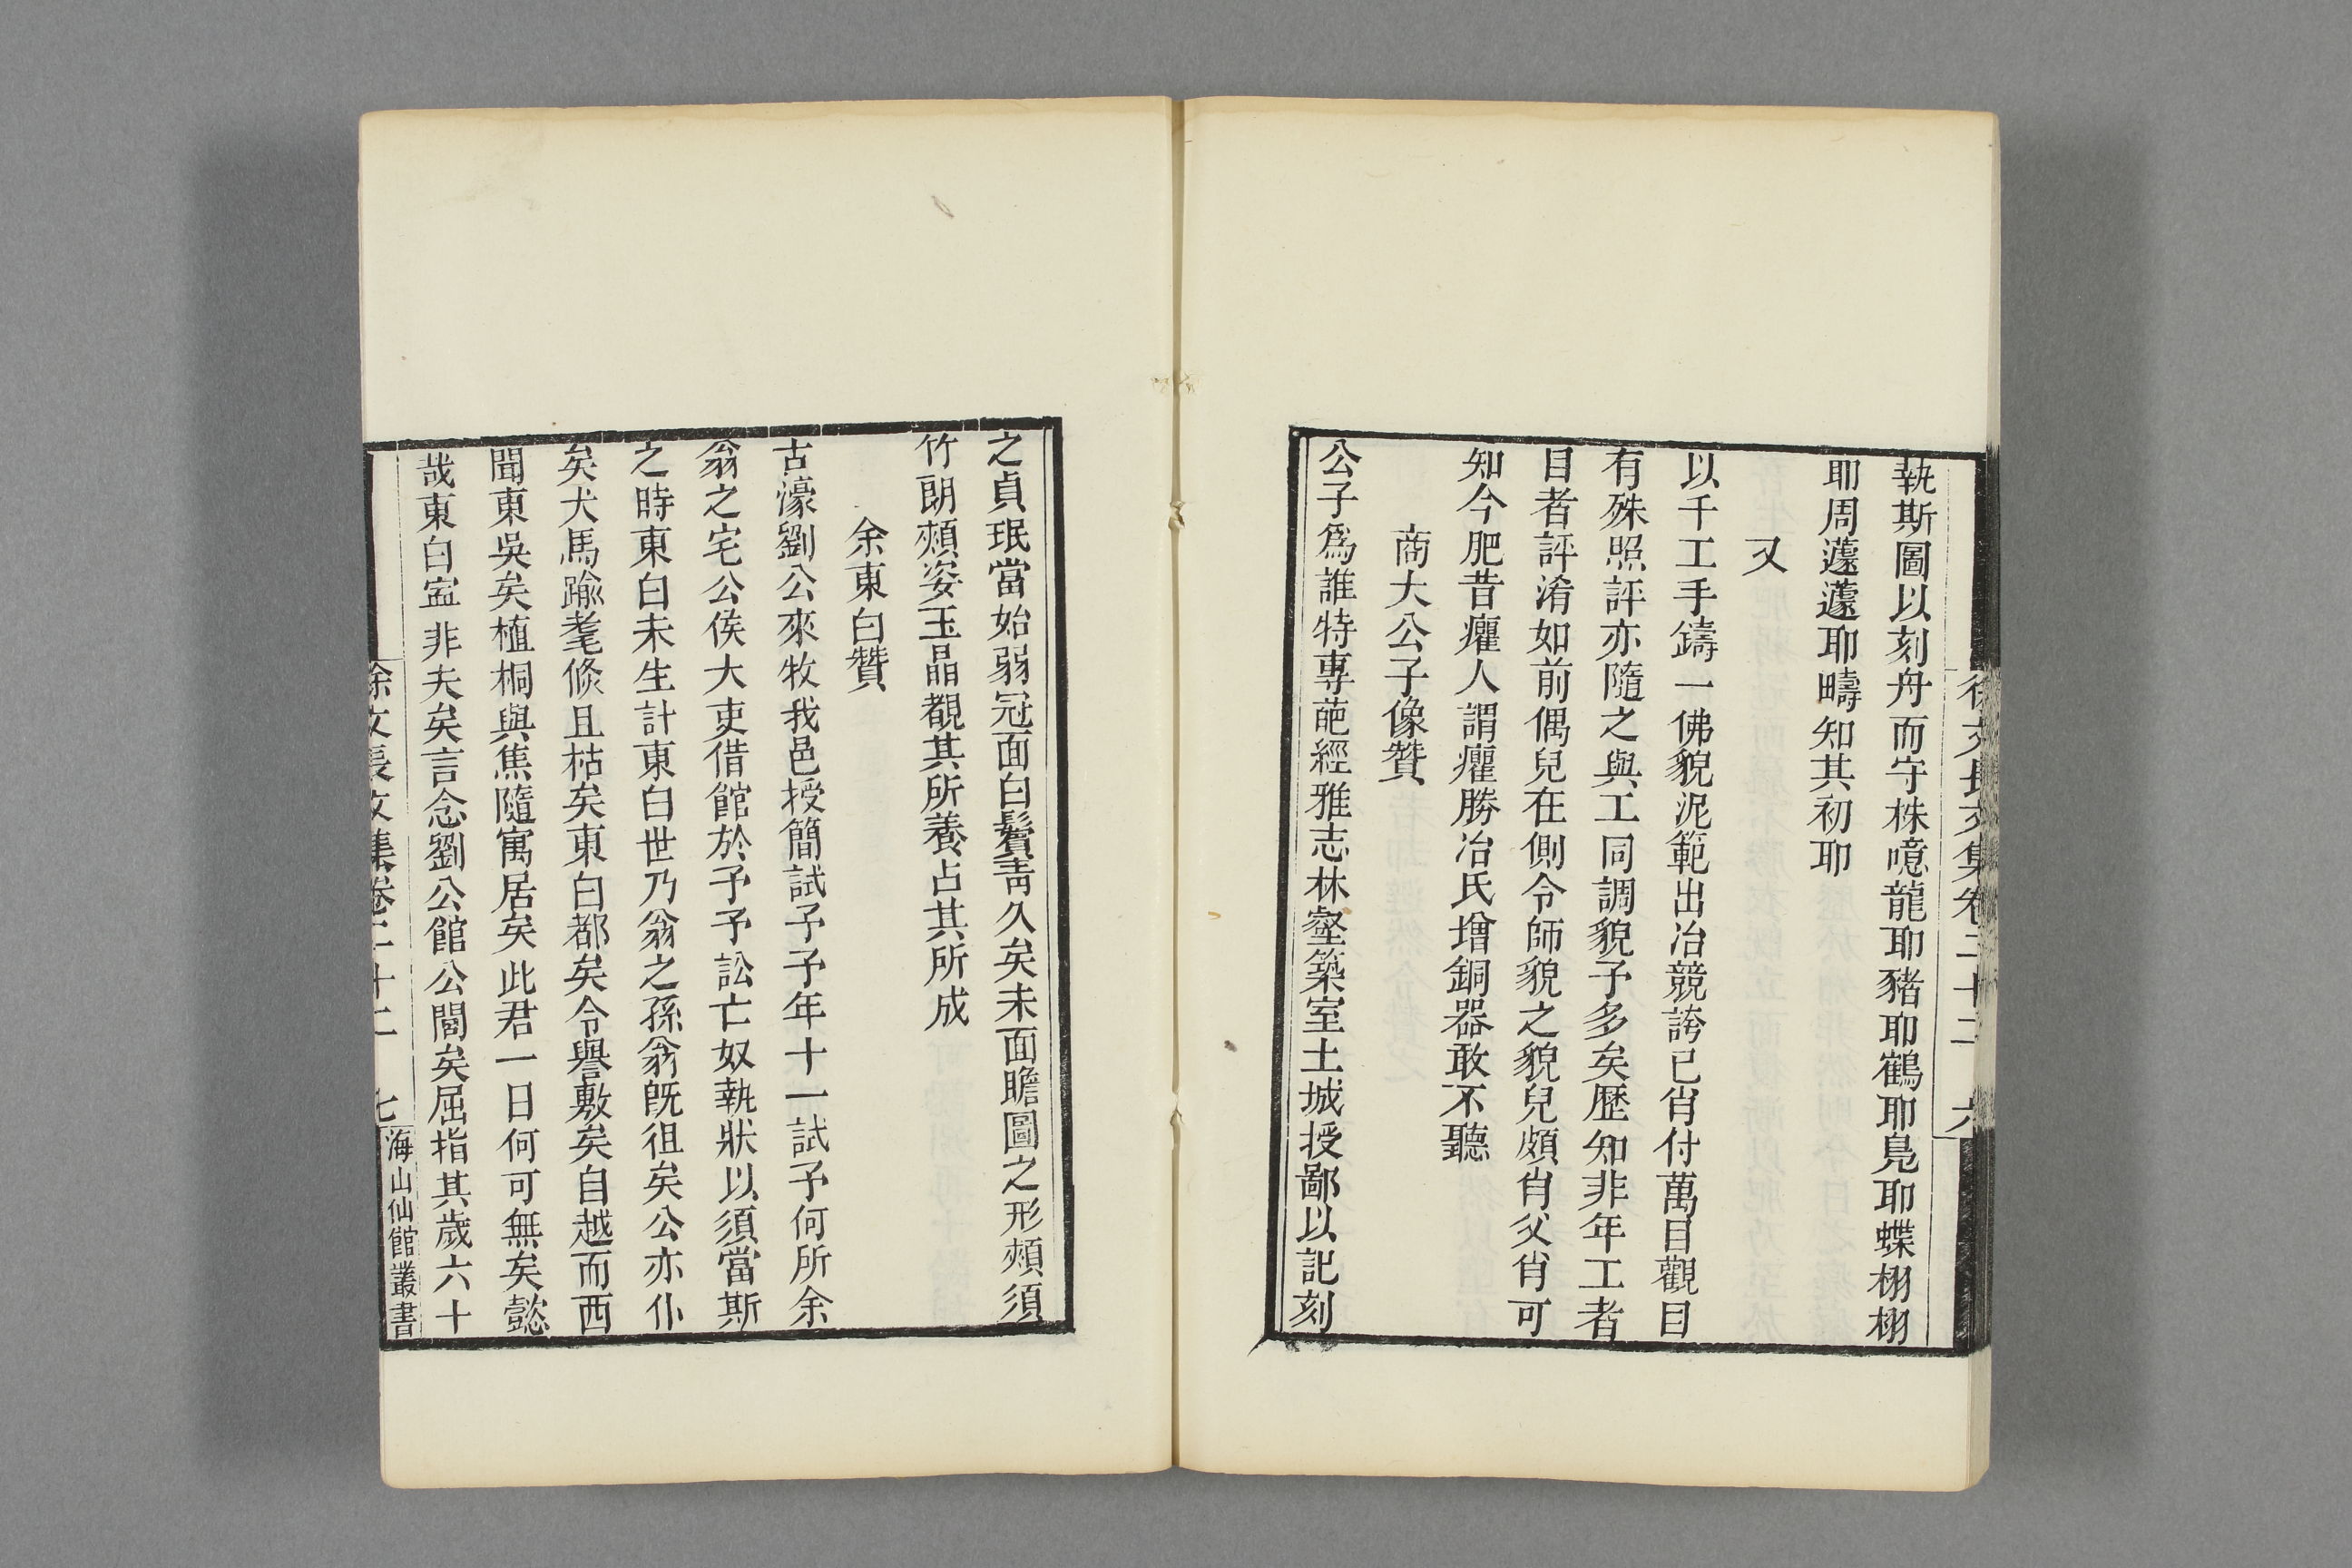 徐文長文集卷二十二 六
執斯圖以刻舟而守株噫龍耶豬耶鶴耶鳧耶蝶栩栩
耶周蘧蘧耶疇知其初耶
又
以千工手鑄一佛貌泥範出冶競誇已肖付萬目觀目
有殊照評亦隨之與工同調貌予多矣歷知非年工者
目者評淆如前偶兒在側令師貌之貌兒頗肖父肖可
知今肥昔癯人謂癯勝冶氏增銅器敢不聽
商大公子像贊
公子爲誰特專葩經雅志林壑築室土城授鄙以記刻
之貞珉當始弱冠面白鬢靑久矣未面瞻圖之形頰須
竹朗頰姿玉晶覩其所養占其所成
余東白贊
古濠劉公來牧我邑授簡試予予年十一試予何所余
翁之宅公侯大吏借館於予予訟亡奴執狀以須當斯
之時東白未生計東白世乃翁之孫翁旣徂矣公亦仆
矣犬馬踰耄倐且枯矣東白都矣令譽敷矣自越而西
聞東吳矣植桐與焦隨寓居矣此君一日何可無矣懿
哉東白寍非夫矣言念劉公館公閣矣屈指其歲六十
徐文長文集卷二十二 七 海山仙館叢書